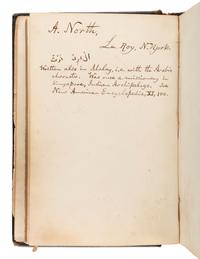 A. North,
Le Roy, N. York.
Written also in Malay, i.e. with the Arabic
character. Was once a missionary in
Singapore, Indian Archipelago. See
New American Encyclopedia, XI,